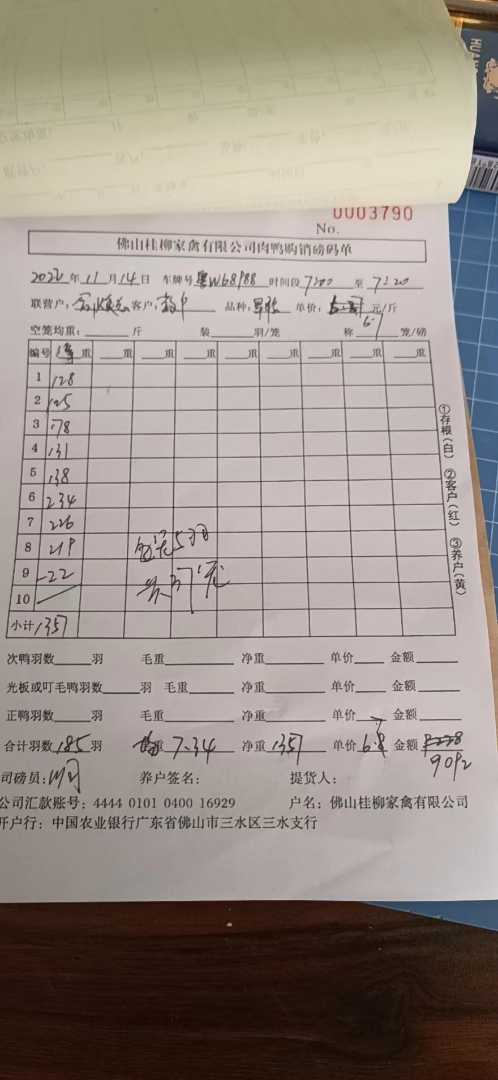 0003790
No.
佛山桂柳家禽有限公司肉鸭购销磅码单
2022年11月14日 车牌号粤W68988 时间段7:00至7:20
联营户: 客户: 品种: 单价: 6.7 元/斤
空笼均重: 斤 装 羽/笼 称 笼/磅
编号 净重 重 重 重 重 重 重 重 重
1 128
2 125
3 178
4 131
5 138
6 234
7 226
8 219
9 -22
10
小计 1357
①存根(白) ②客户(红) ③养户(黄)
次鸭羽数 羽 毛重 净重 单价 金额
光板或叮毛鸭羽数 羽 毛重 净重 单价 金额
正鸭羽数 羽 毛重 净重 单价 金额
合计羽数185羽 7.34 净重1357 单价6.7 金额9092
司磅员: 养户签名: 提货人:
公司汇款账号: 4444 0101 0400 16929 户名: 佛山桂柳家禽有限公司
开户行: 中国农业银行广东省佛山市三水区三水支行